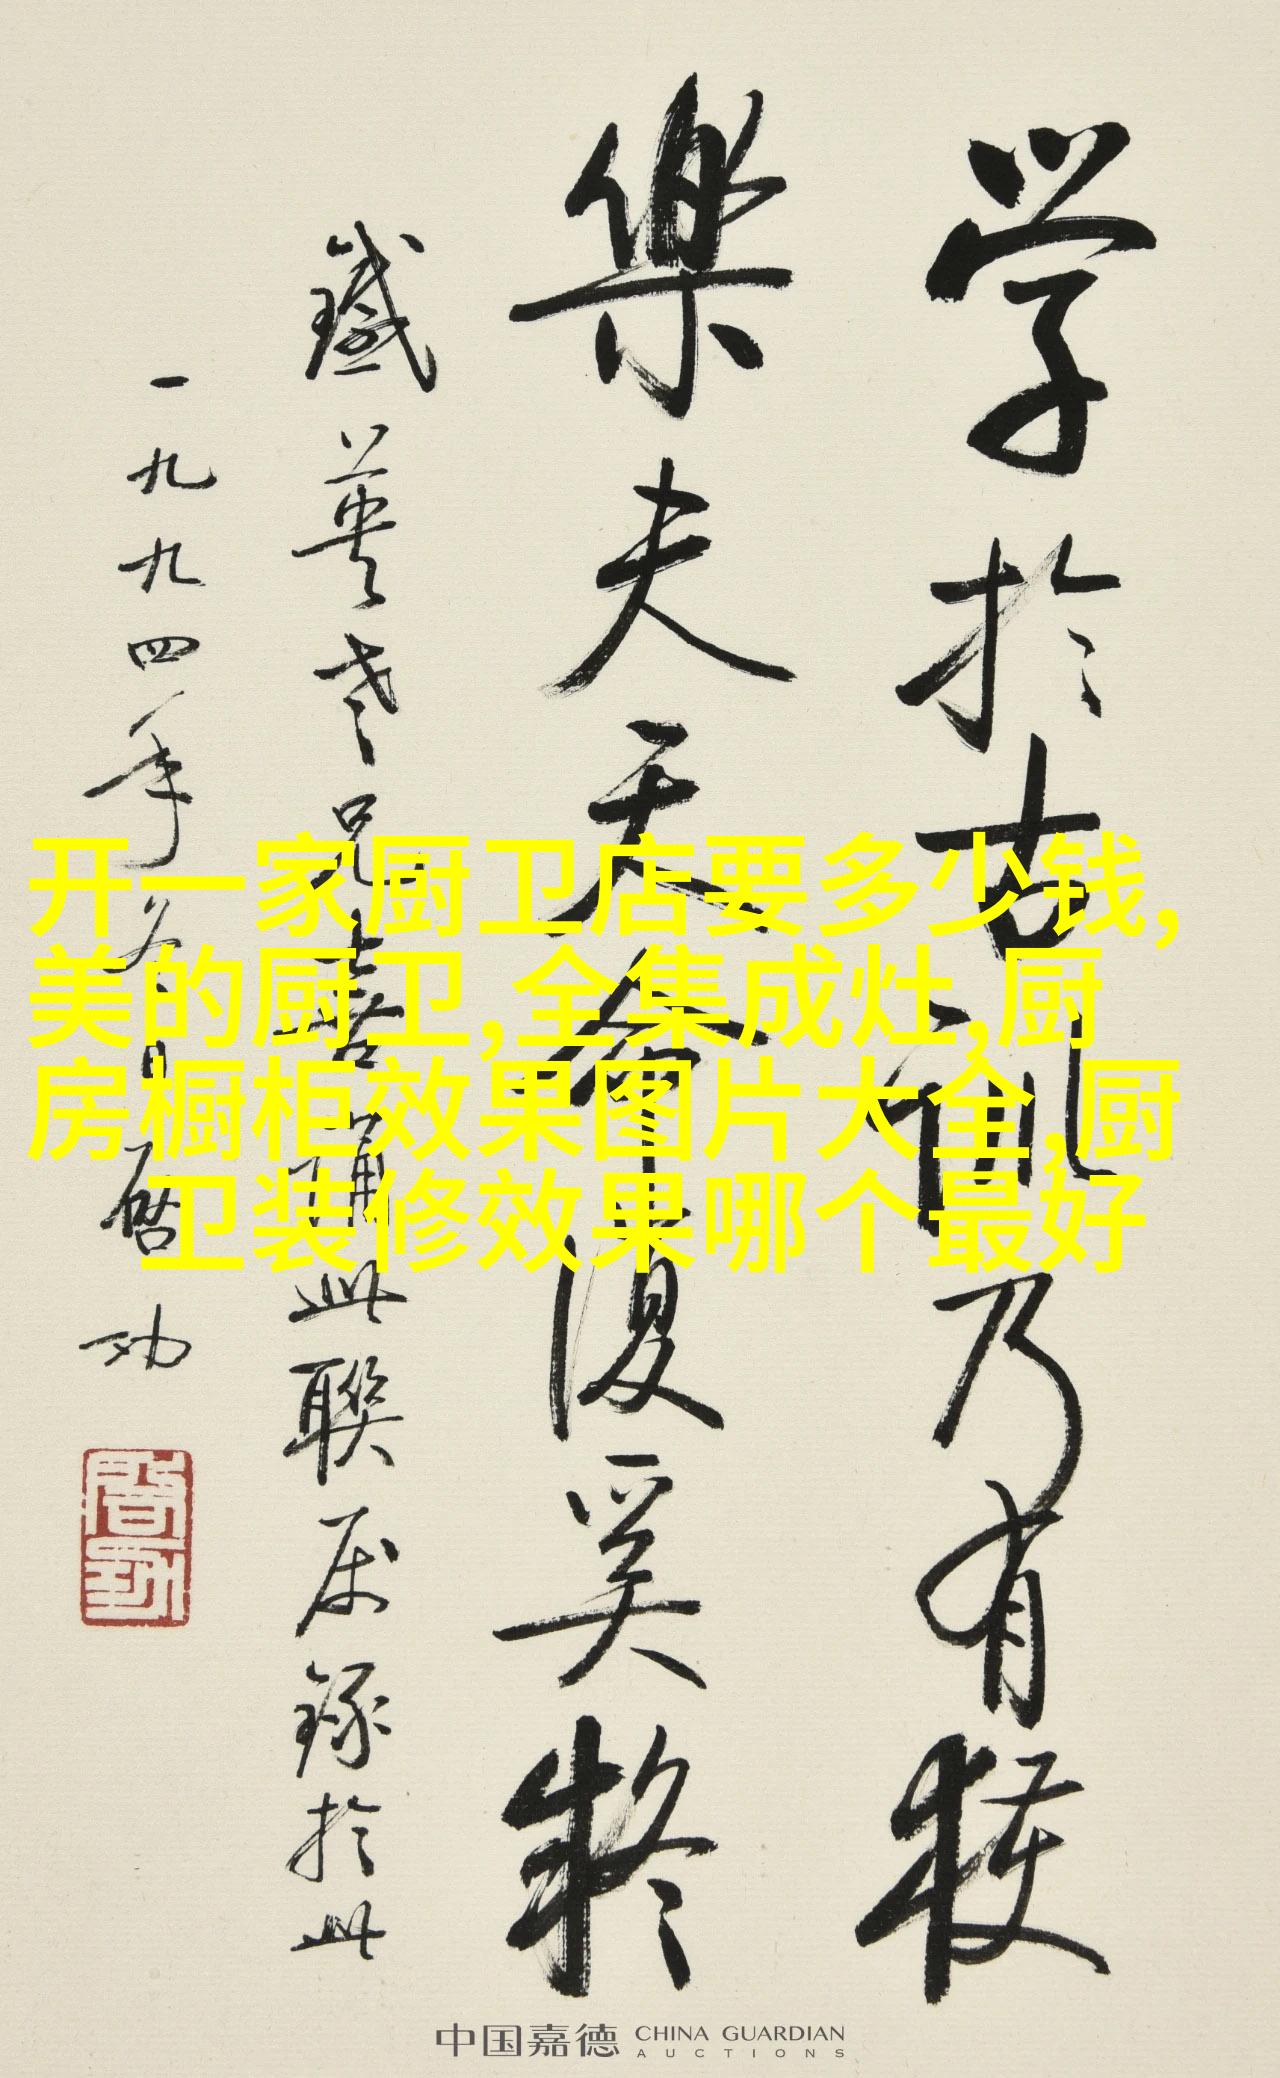 学於古訓乃有獲
樂夫天命復奚疑
鐵英老兄喜誦此聯属錄於此
一九九四年冬日启功
开一家厨卫店要多少钱,
美的厨卫,全集成灶,厨
房橱柜效果图片大全,厨
卫装修效果哪个最好
中国嘉德 CHINA GUARDIAN
AUCTIONS